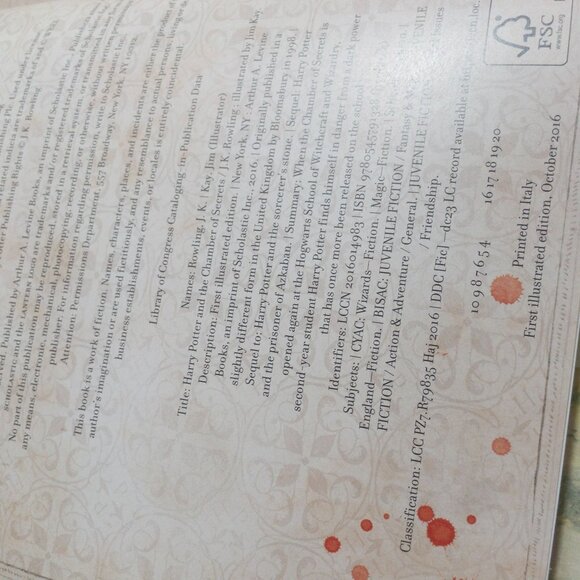 Published by Arthur A. Levine Books, an imprint of Scholastic Inc., Publishers
SCHOLASTIC and the LANTERN LOGO are trademarks and/or registered trademarks of Scholastic Inc.
No part of this publication may be reproduced, stored in a retrieval system, or transmitted in any form or by
any means, electronic, mechanical, photocopying, recording, or otherwise, without written permission of the
publisher. For information regarding permission, write to Scholastic Inc.,
Attention: Permissions Department, 557 Broadway, New York, NY 10012.
This book is a work of fiction. Names, characters, places, and incidents are either the product of the
author's imagination or are used fictitiously, and any resemblance to actual persons, living or
business establishments, events, or locales is entirely coincidental.
Library of Congress Cataloging-in-Publication Data
Names: Rowling, J. K. | Kay, Jim (Illustrator)
Title: Harry Potter and the Chamber of Secrets / J.K. Rowling ; illustrated by Jim Kay.
Description: First illustrated edition. | New York, NY : Arthur A. Levine
Books, an imprint of Scholastic Inc., 2016. | Originally published in a
slightly different form in the United Kingdom by Bloomsbury in 1998. |
Sequel to: Harry Potter and the sorcerer's stone. | Sequel: Harry Potter
and the prisoner of Azkaban. | Summary: When the Chamber of Secrets is
opened again at the Hogwarts School of Witchcraft and Wizardry,
second-year student Harry Potter finds himself in danger from a dark power
that has once more been released on the school
Identifiers: LCCN 2016014983 | ISBN
Subjects: | CYAC: Wizards—Fiction. | Magic—Fiction. |
England—Fiction. | BISAC: JUVENILE FICTION / Fantasy &
FICTION / Action & Adventure / General. | JUVENILE FICTION
/ Friendship.
Classification: LCC PZ7.R79835 Haj 2016 | DDC [Fic] —dc23 LC record available at
10 9 8 7 6 5 4 16 17 18 19 20
Printed in Italy
First illustrated edition, October 2016
FSC
www.fsc.org